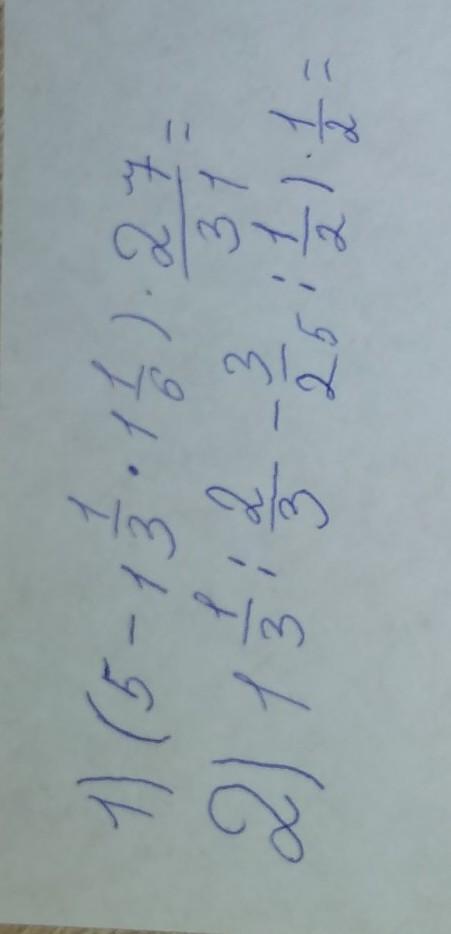 1) (5 - 1 1/3 · 1 1/6) · 27/31 =
2) 1 1/3 : 2/3 - 3/25 : 1/2) · 1/2 =